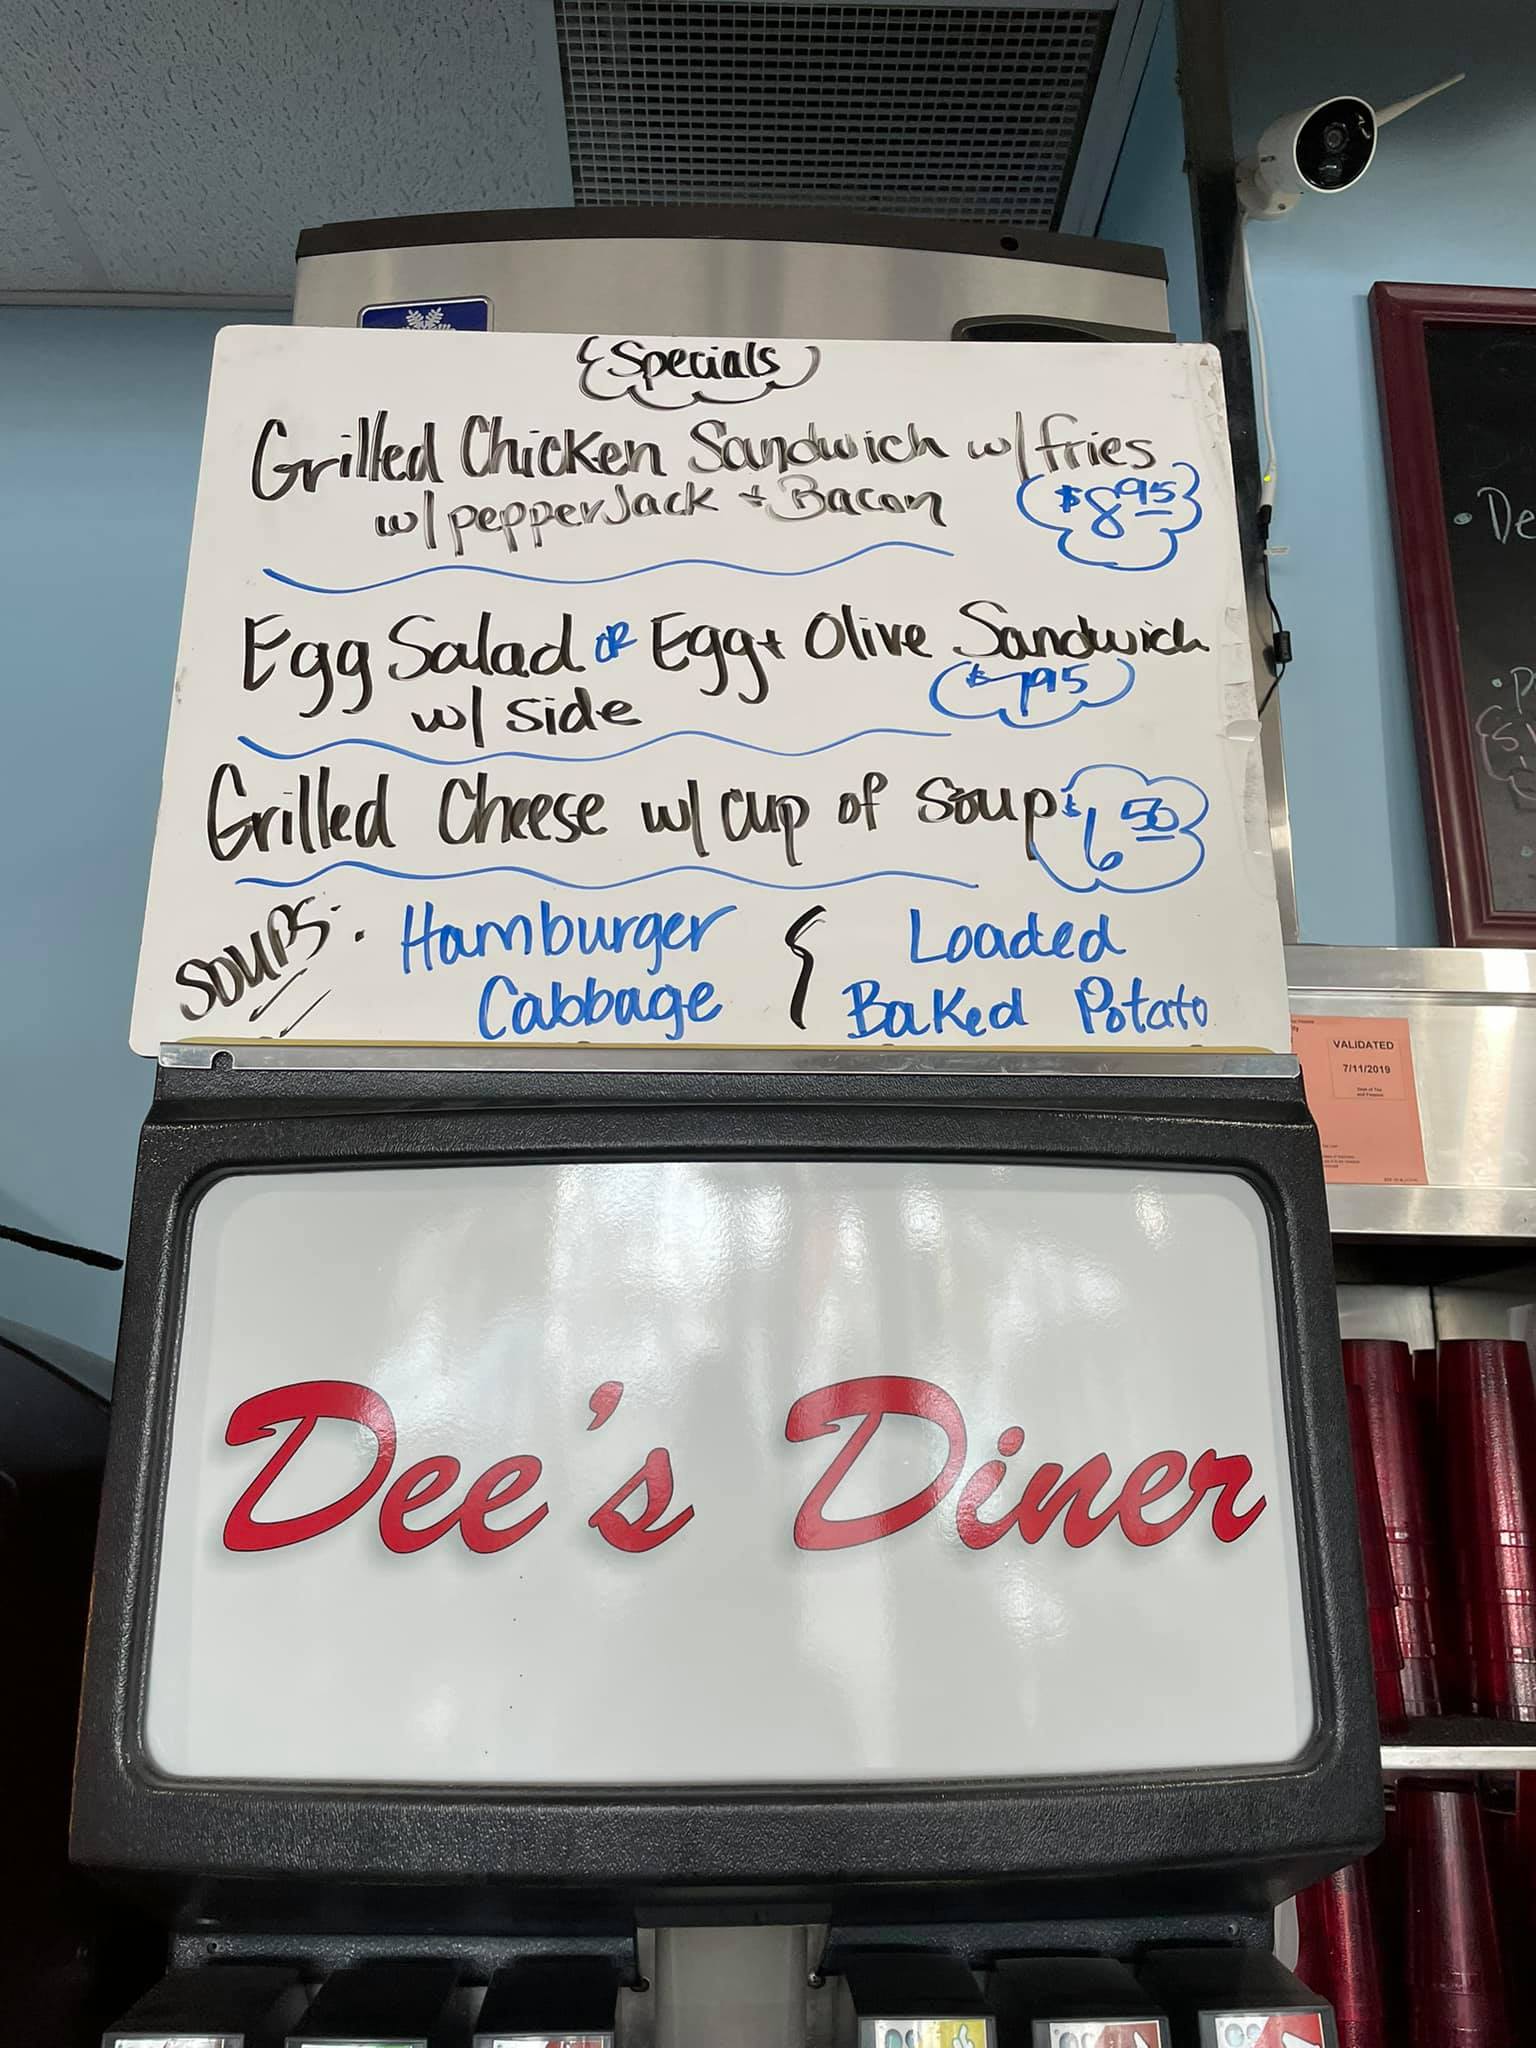 Specials
Grilled Chicken Sandwich w/ fries
w/ pepper Jack + Bacon $8.95
Egg Salad OR Egg + Olive Sandwich
w/ side $7.95
Grilled Cheese w/ cup of soup $6.50
SOUPS: Hamburger Cabbage
Loaded Baked Potato
VALIDATED
7/11/2019
Dee's Diner